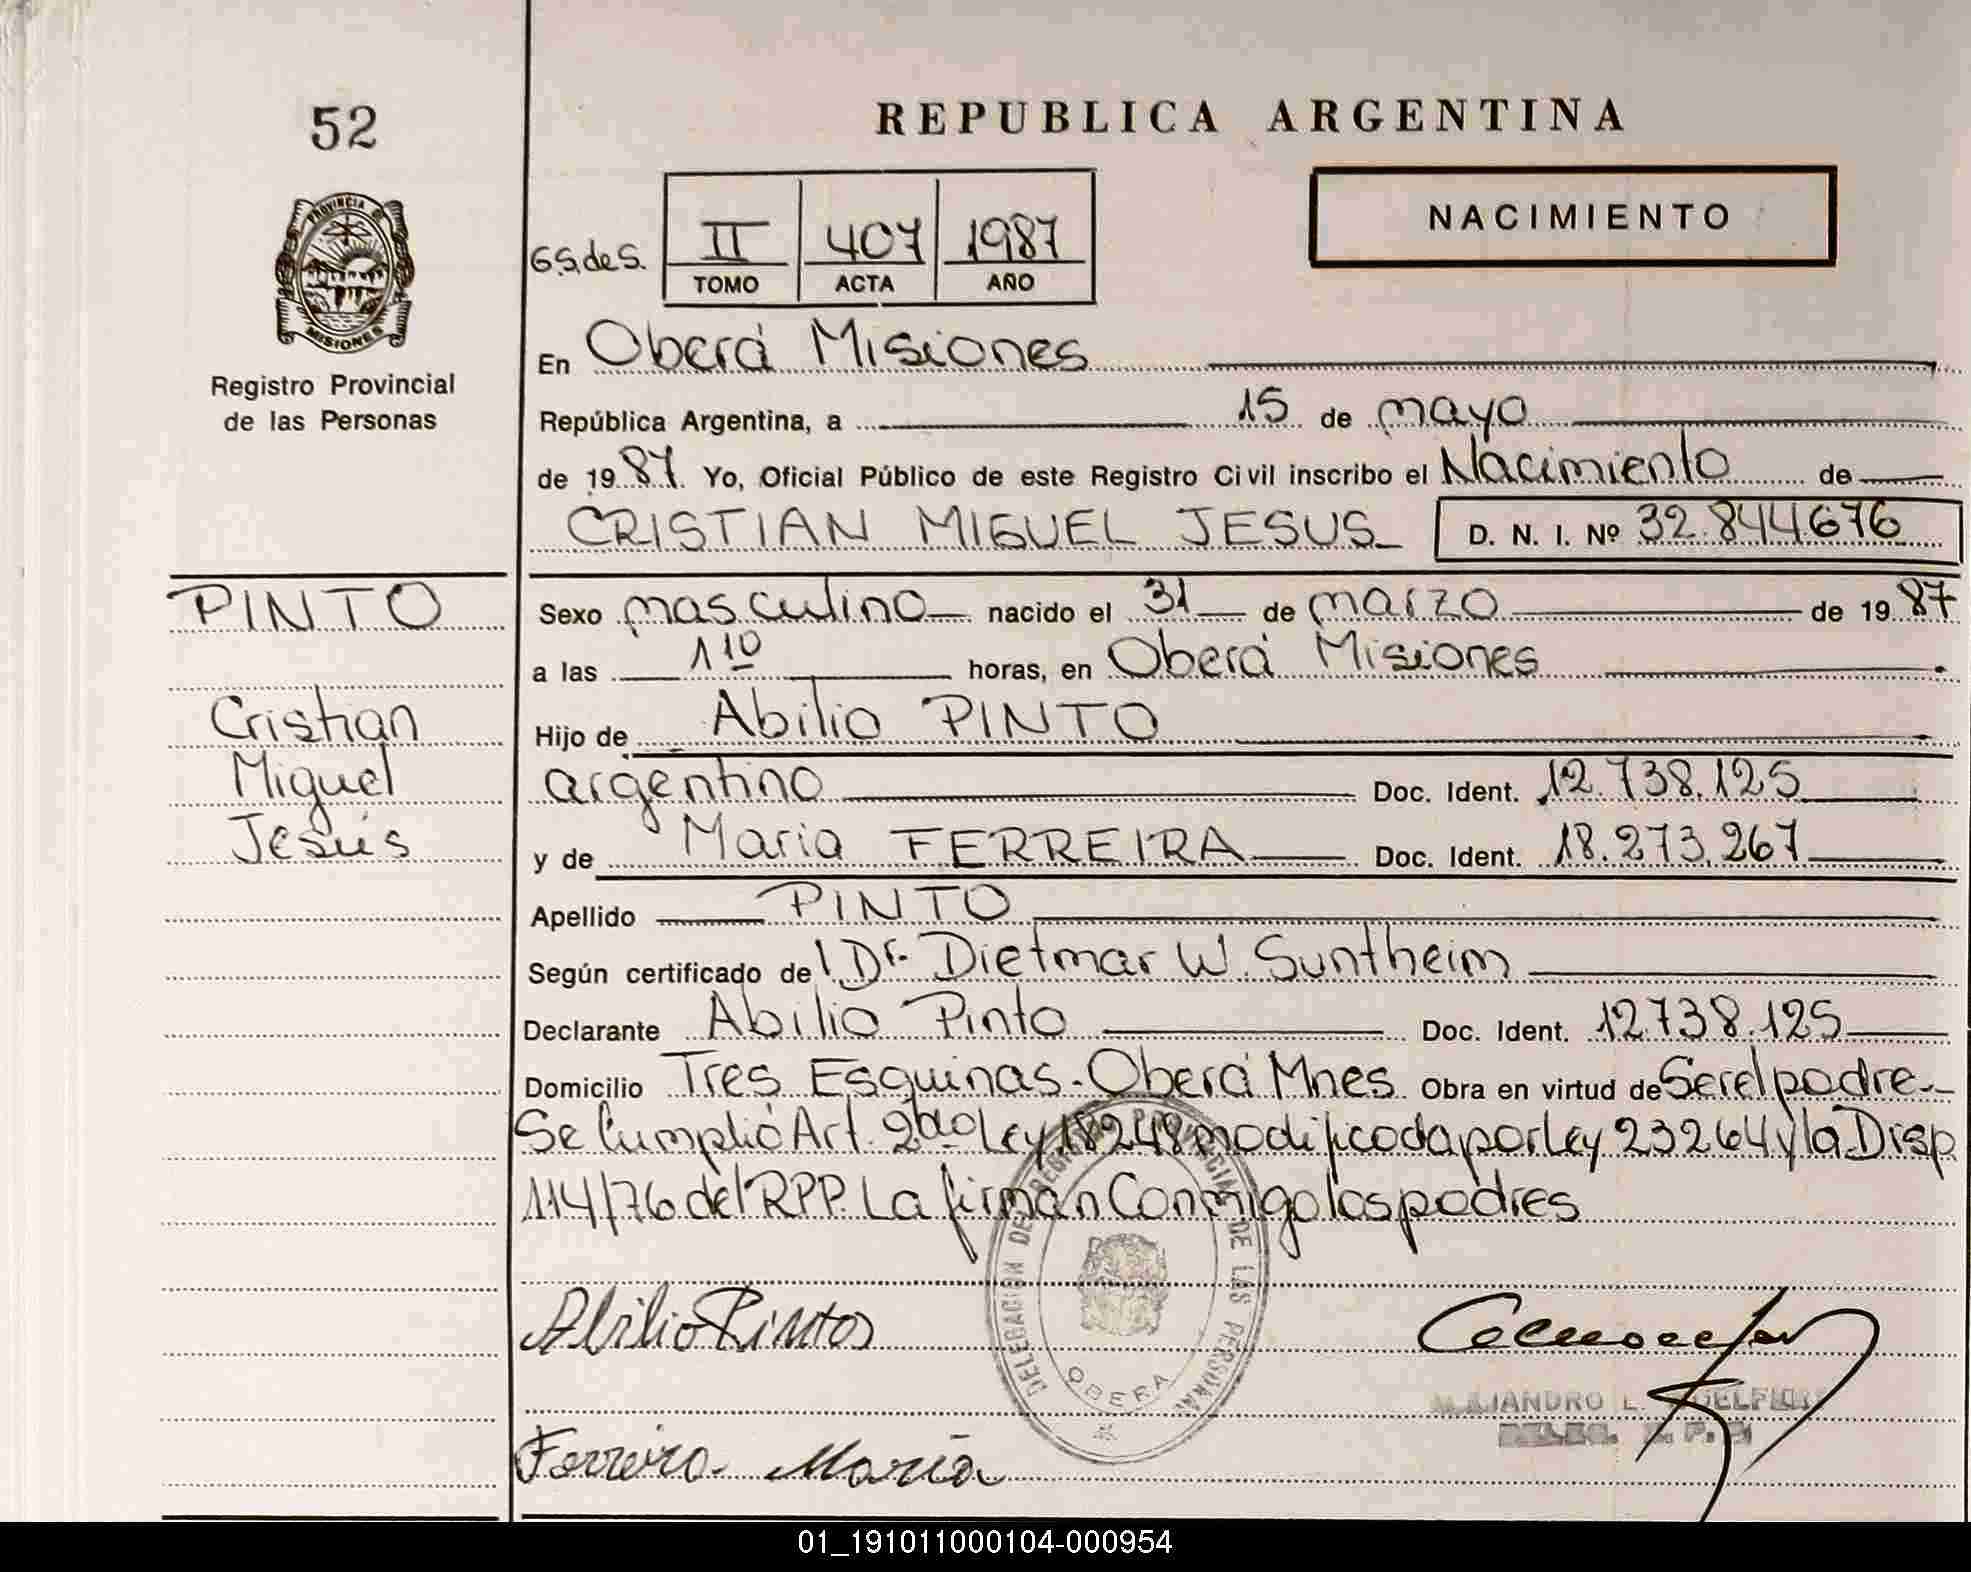 52
REPUBLICA ARGENTINA
NACIMIENTO
PROVINCIA DE
MISIONES
Registro Provincial
de las Personas
G.S. de S.
II 407 1987
TOMO ACTA AÑO
En Oberá Misiones
República Argentina, a 15 de mayo
de 1987. Yo, Oficial Público de este Registro Civil inscribo el Nacimiento de
CRISTIAN MIGUEL JESUS D. N. I. Nº 32.844676
PINTO
Cristian
Miguel
Jesús
Sexo masculino nacido el 31 de marzo de 1987
a las 1 10 horas, en Oberá Misiones
Hijo de Abilio PINTO
argentino Doc. Ident. 12.738.125
y de Maria FERREIRA Doc. Ident. 18.273.267
Apellido PINTO
Según certificado del Dr. Dietmar W. Suntheim
Declarante Abilio Pinto Doc. Ident. 12.738.125
Domicilio Tres Esquinas - Oberá Mnes. Obra en virtud de Ser el padre
Se Cumplió Art. 2do Ley 18248 modificada por Ley 23264 y la Disp
114/76 del RPP. La firman Conmigo los padres
DELEGACION DEL REGISTRO PROVINCIAL DE LAS PERSONAS
OBERA
Abilio Pintos
Ferreira Maria
01_191011000104-000954